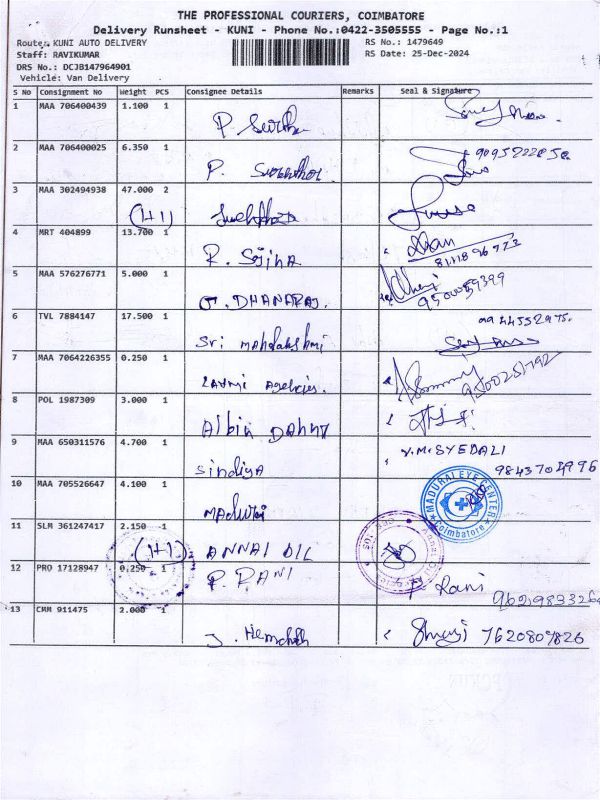 THE PROFESSIONAL COURIERS, COIMBATORE
Delivery Runsheet - KUNI - Phone No.:0422-3505555 - Page No.:1
Route: KUNI AUTO DELIVERY
RS No.: 1479649
Staff: RAVIKUMAR
RS Date: 25-Dec-2024
DRS No.: DCJB147964901
Vehicle: Van Delivery
S No Consignment No Weight PCS Consignee Details Remarks Seal & Signature
1 MAA 706400439 1.100 1
P.
2 MAA 706400025 6.350 1
P.
3 MAA 302494938 47.000 2
(1+1)
4 MRT 404899 13.700 1
R. Sojina
8111896723
5 MAA 576276771 5.000 1
J. DHANARAJ.
9500059399
6 TVL 7884147 17.500 1
9944552975.
Sri Mahalakshmi
7 MAA 7064226355 0.250 1
Laxmi Agencies.
9500251792
8 POL 1987309 3.000 1
Albin
9 MAA 650311576 4.700 1
V.M.SYEDALI
Sindiya
9843704996
10 MAA 705526647 4.100 1
MADURAI EYE CENTER
Coimbatore
Madurai
11 SLM 361247417 2.150 1
(1+1) ANNAI OIL
12 PRO 17128947 0.250 1
P. RANI
P Rani
962983326
13 CMM 911475 2.000 1
J.
7620809826